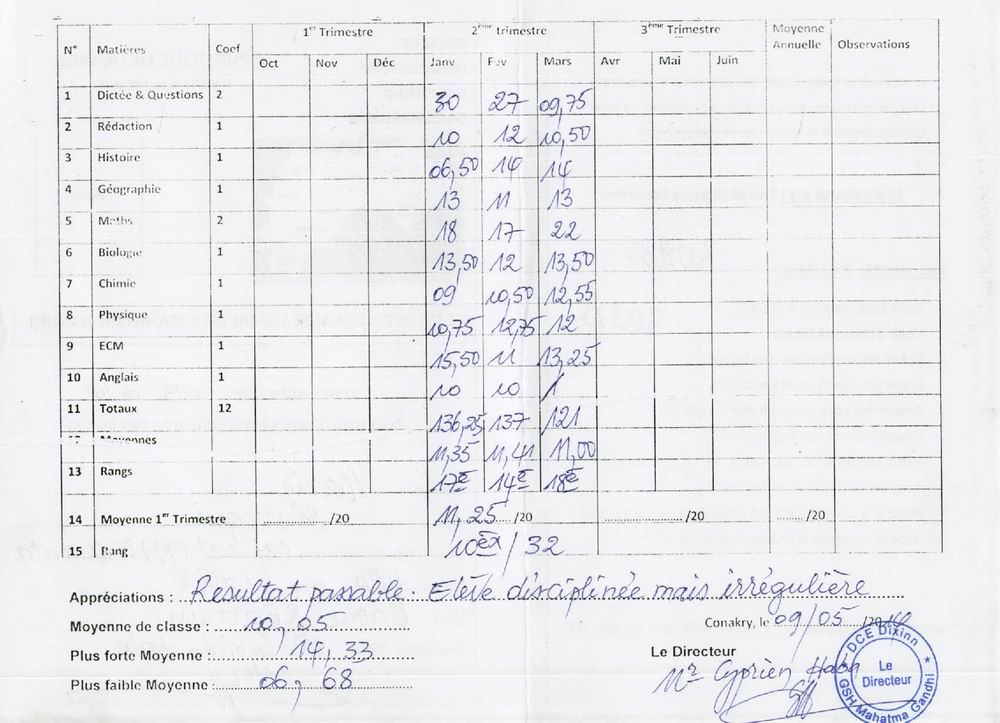 1er Trimestre 2ème trimestre 3ème Trimestre Moyenne Annuelle Observations
N° Matières Coef Oct Nov Déc Janv Fev Mars Avr Mai Juin
1 Dictée & Questions 2 30 27 09,75
2 Rédaction 1 10 12 10,50
3 Histoire 1 06,50 14 14
4 Géographie 1 13 11 13
5 Maths 2 18 17 22
6 Biologie 1 13,50 12 13,50
7 Chimie 1 09 10,50 12,55
8 Physique 1 10,75 12,75 12
9 ECM 1 15,50 11 13,25
10 Anglais 1 10 10 /
11 Totaux 12 136,25 137 121
Moyennes 11,35 11,41 11,00
13 Rangs 17e 14e 18e
14 Moyenne 1er Trimestre ............/20 11,25 /20 ............/20 ....../20
15 Rang 10ex / 32
Appréciations : Resultat passable. Elève disciplinée mais irrégulière
Moyenne de classe : 10,05
Conakry, le 09/05 /20
Plus forte Moyenne : 14,33
Le Directeur
Plus faible Moyenne : 06,68
Mr Cyprien Haba
DCE Dixinn
Le Directeur
GSH Mahatma Gandhi